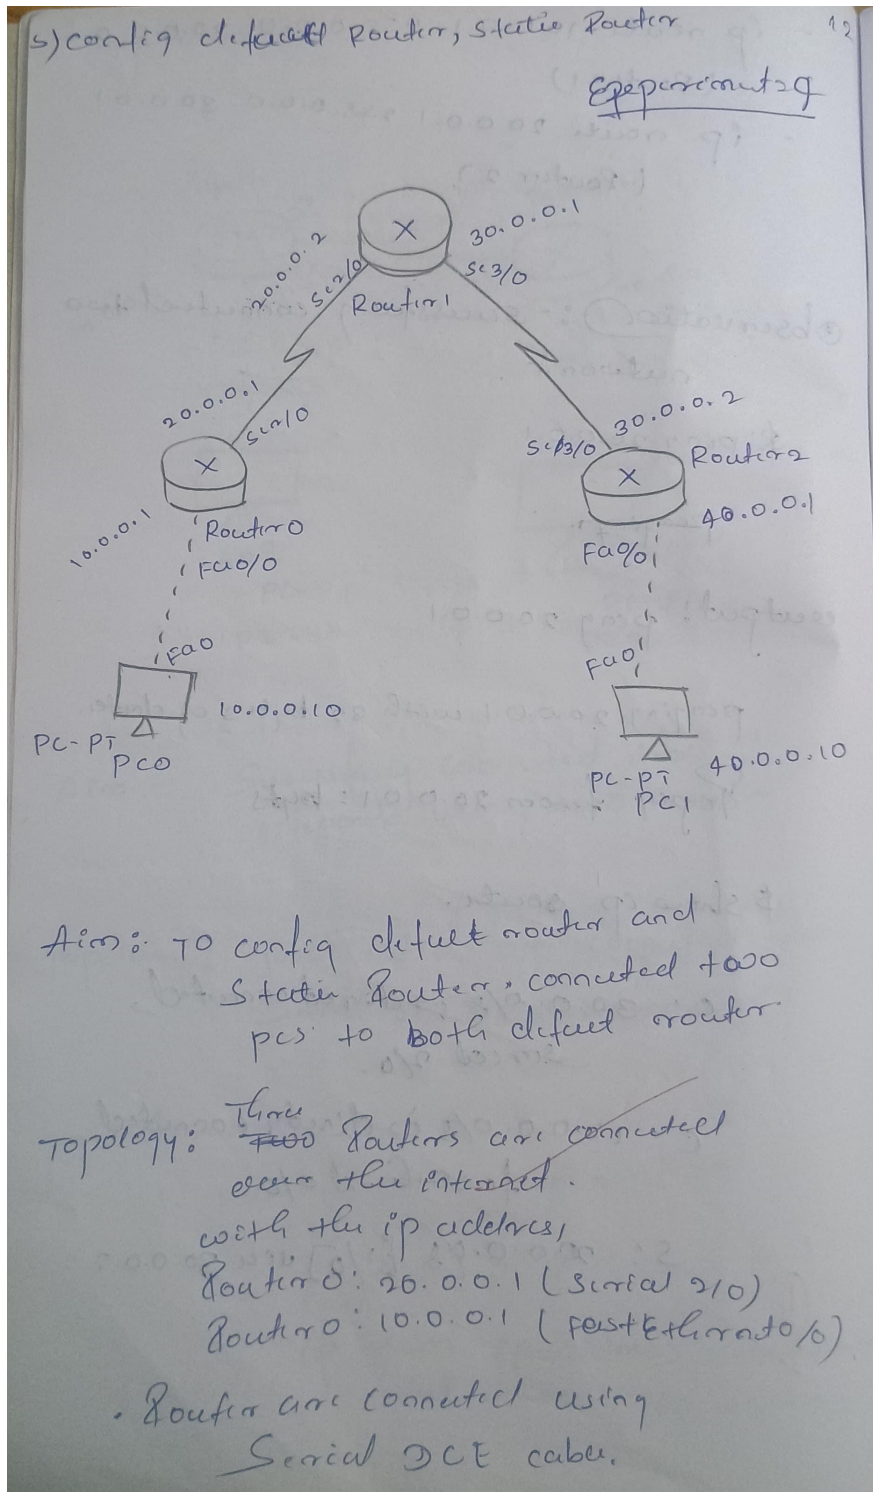 5) config default Router, Static Router
12
Experiment 24
30.0.0.1
20.0.0.2
Se2/0
Se3/0
Router1
20.0.0.1
Se2/0
30.0.0.2
Se3/0
Router2
10.0.0.1
Router0
40.0.0.1
Fa0/0
Fa0/0
Fa0
Fa0
10.0.0.10
PC-PT
PC0
40.0.0.10
PC-PT
PC1
Aim: To config defult router and
Static Router, connected two
pcs to both defult router
Three
Topology: Two Routers are connected
over the internet.
with the ip address,
Router0: 20.0.0.1 (Serial 2/0)
Router0: 10.0.0.1 (FastEthernet0/0)
. Router are connected using
Serial DCE cable.